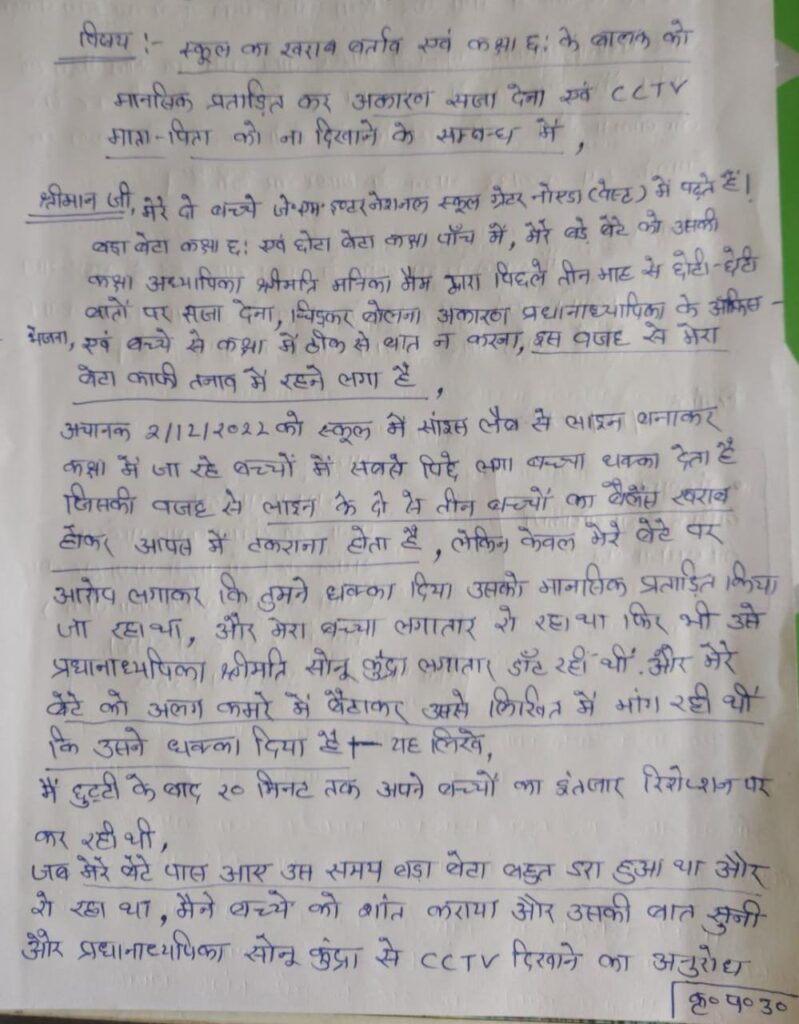 विषय :- स्कूल का खराब बर्ताव एवं कक्षा छ: के बालक को
मानसिक प्रताड़ित कर अकारण सजा देना एवं CCTV
माता-पिता को ना दिखाने के सम्बन्ध में,
श्रीमान जी, मेरे दो बच्चे जे०एम० इण्टरनेशनल स्कूल ग्रेटर नोएडा (वेस्ट) में पढ़ते हैं।
बड़ा बेटा कक्षा छ: एवं छोटा बेटा कक्षा पाँच में, मेरे बड़े बेटे को उसकी
कक्षा अध्यापिका श्रीमति मनिका मैम द्वारा पिछले तीन माह से छोटी-छोटी
बातों पर सजा देना, चिड़कर बोलना अकारण प्रधानाध्यापिका के ऑफिस -
भेजना, एवं बच्चे से कक्षा में ठीक से बात न करना, इस वजह से मेरा
बेटा काफी तनाव में रहने लगा है,
अचानक 2/12/2022 को स्कूल में सांइस लैब से लाइन बनाकर
कक्षा में जा रहे बच्चों में सबसे पिछे लगा बच्चा धक्का देता है
जिसकी वजह से लाइन के दो से तीन बच्चों का बैलेंस खराब
होकर आपस में टकराना होता है, लेकिन केवल मेरे बेटे पर
आरोप लगाकर कि तुमने धक्का दिया उसको मानसिक प्रताड़ित किया
जा रहा था, और मेरा बच्चा लगातार रो रहा था फिर भी उसे
प्रधानाध्यपिका श्रीमति सोनू कुंद्रा लगातार डाँट रही थीं. और मेरे
बेटे को अलग कमरे में बैठाकर उससे लिखित में मांग रही थीं
कि उसने धक्का दिया है यह लिखे,
मैं छुट्टी के बाद २० मिनट तक अपने बच्चों का इंतजार रिशेप्शन पर
कर रही थी,
जब मेरे बेटे पास आए उस समय बड़ा बेटा बहुत डरा हुआ था और
रो रहा था, मैने बच्चे को शांत कराया और उसकी बात सुनी
और प्रधानाध्यपिका सोनू कुंद्रा से CCTV दिखाने का अनुरोध
कृ० प० उ०